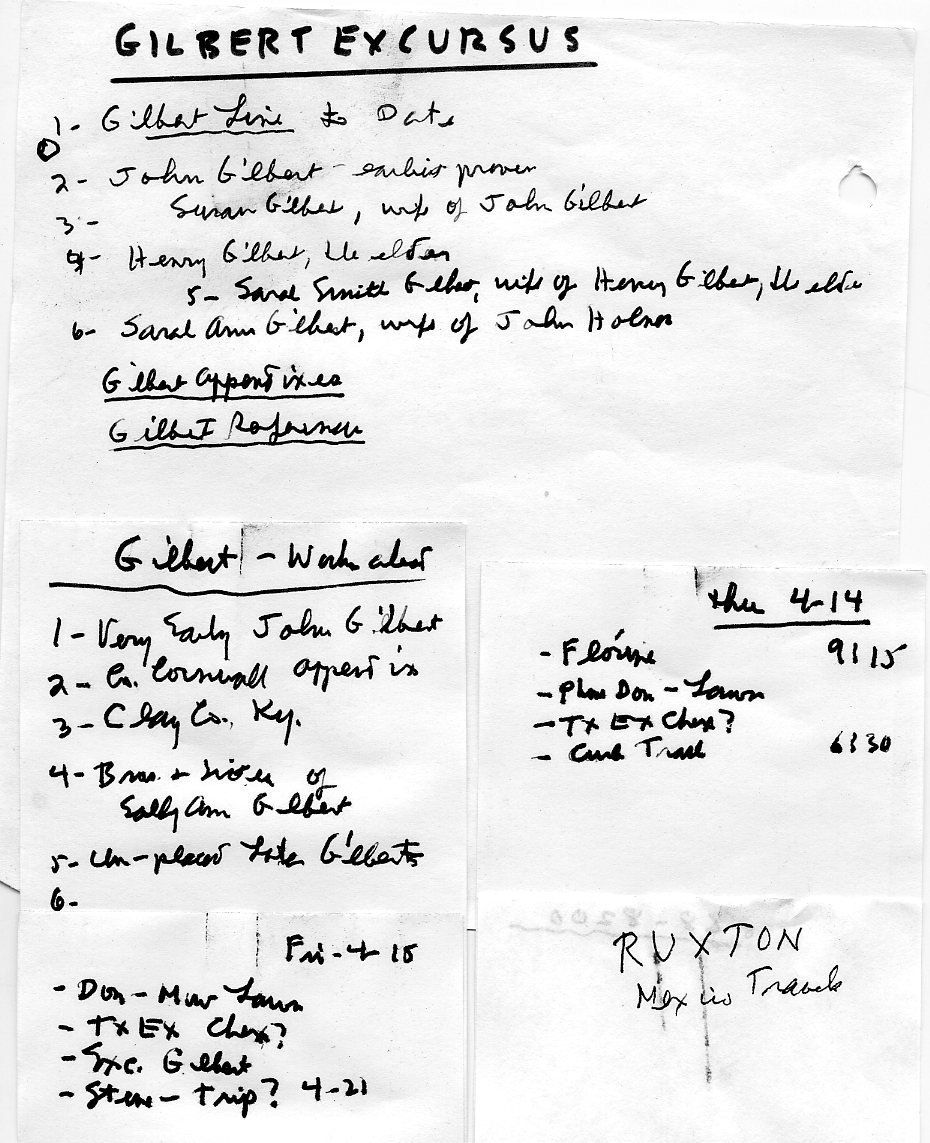 GILBERT EXCURSUS
1- Gilbert Line to Date
2- John Gilbert - earliest proven
3- Susan Gilbert, wife of John Gilbert
4- Henry Gilbert, the elder
5- Sarah Smith Gilbert, wife of Henry Gilbert, the elder
6- Sarah Ann Gilbert, wife of John Holmes
Gilbert Appendixes
Gilbert References
Gilbert -
1- Very Early John Gilbert
2- Co. Cornwall Appendix
3- Clay Co., Ky.
4- Bros. + Sisters of
Sally Ann Gilbert
5- Un-placed Later Gilberts
6-
Fri - 4-15
- Don - Mow Lawn
- TX EX Chex?
- Exc. Gilbert
- Steve - Trip? 4-21
Thu 4-14
- 9115
- Phone Don - Lawn
- TX EX Chex?
- Curb Trash 6:30
RUXTON
Mexico Travels